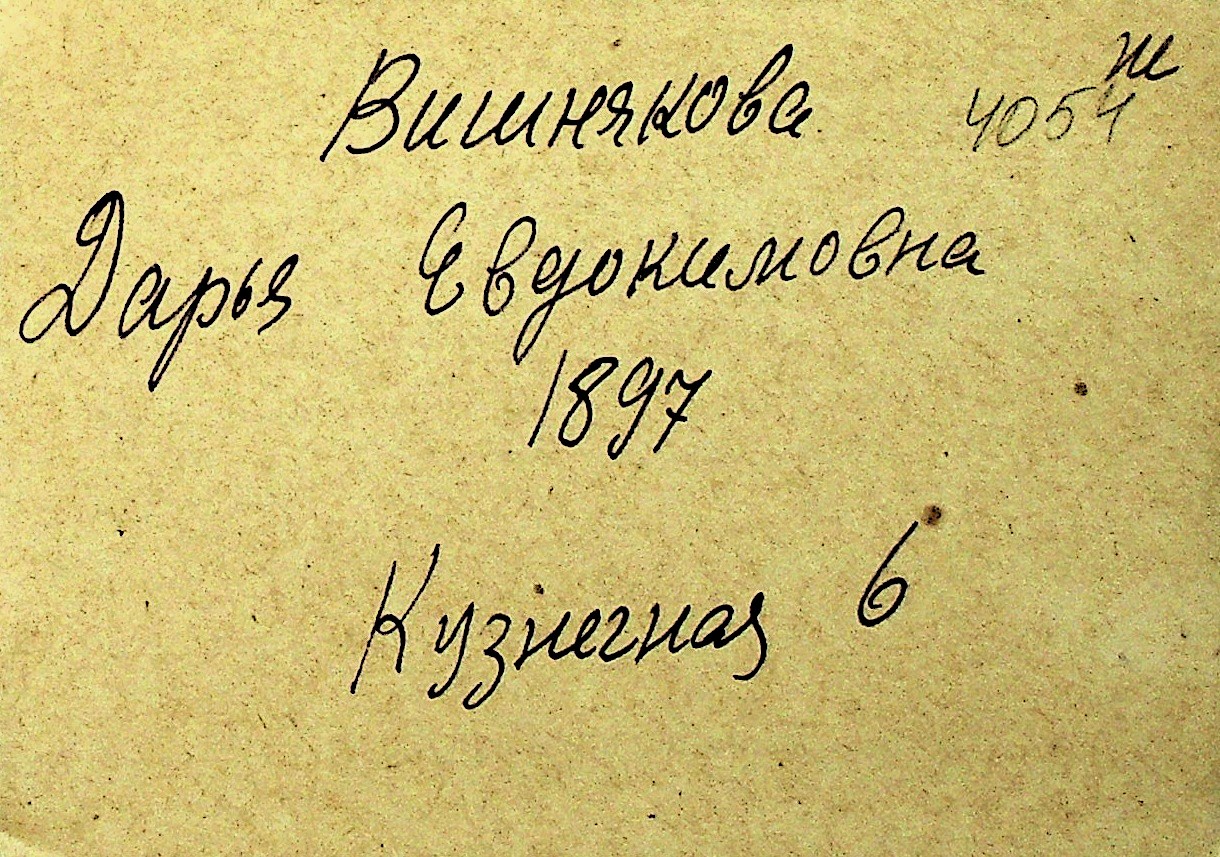 Вишнякова
ж
4054
Дарья Евдокимовна
1897
Кузнечная 6